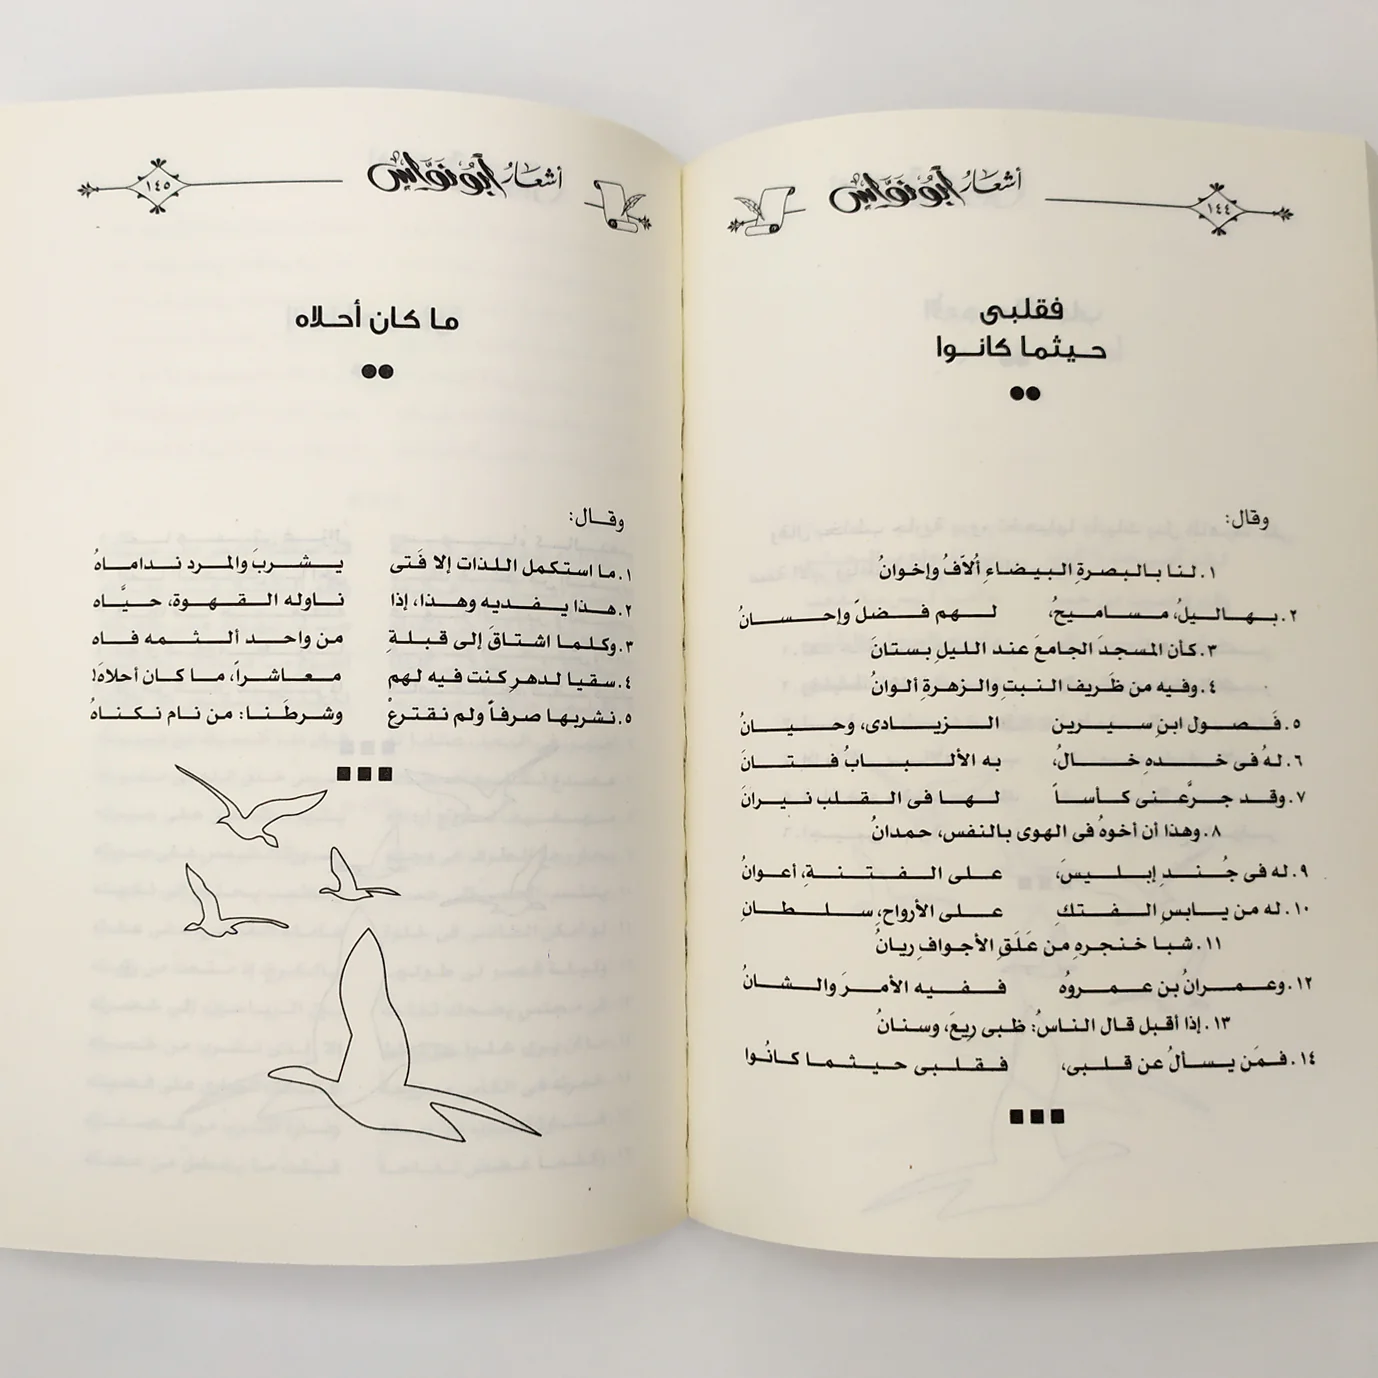 أشعار أبو نوَّاس
١٤٤
فقلبى
حيثما كانوا
وقال:
١. لنا بالبصرةِ البيضاءِ أُلاَّفُ وإخوانُ
٢. بهاليلُ، مساميحُ، لهم فضلَ وإحسانُ
٣. كأن المسجدَ الجامعَ عند الليلِ بستانَ
٤. وفيه من ظَريف النبتِ والزهرةِ ألوانُ
٥. فَصول ابنِ سيرين الزيادى، وحيانُ
٦. لهُ فى خدهِ خالُ، به الألبابُ فتانَ
٧. وقد جرَّعنى كأساً لها فى القلب نيرانَ
٨. وهذا أن أخوهُ فى الهوى بالنفس، حمدانُ
٩. له فى جُندِ إبليسَ، على الفتنةِ، أعوانُ
١٠. له من يابسِ الفتكِ على الأرواحِ، سلطانِ
١١. شبا خنجره من عَلَقِ الأجوافِ ريانُ
١٢. وعمرانُ بن عمروُه ففيه الأمرَ والشانُ
١٣. إذا أقبل قال الناسُ: ظبى رِيعَ، وسنانُ
١٤. فمَن يسألُ عن قلبى، فقلبى حيثما كانُوا
أشعار أبو نوَّاس
١٤٥
ما كان أحلاه
وقال:
١. ما استكمل اللذات إلا فَتى يشربَ والمرد نداماهُ
٢. هذا يفديه وهذا، إذا ناوله القهوة، حيَّاه
٣. وكلما اشتاقَ إلى قبلةِ من واحد ألثمه فاه
٤. سقيا لدهرِ كنت فيه لهم معاشراً، ما كان أحلاهَ!
٥. نشربها صرفاً ولم نقترعْ وشرطَنا: من نام نكناهُ